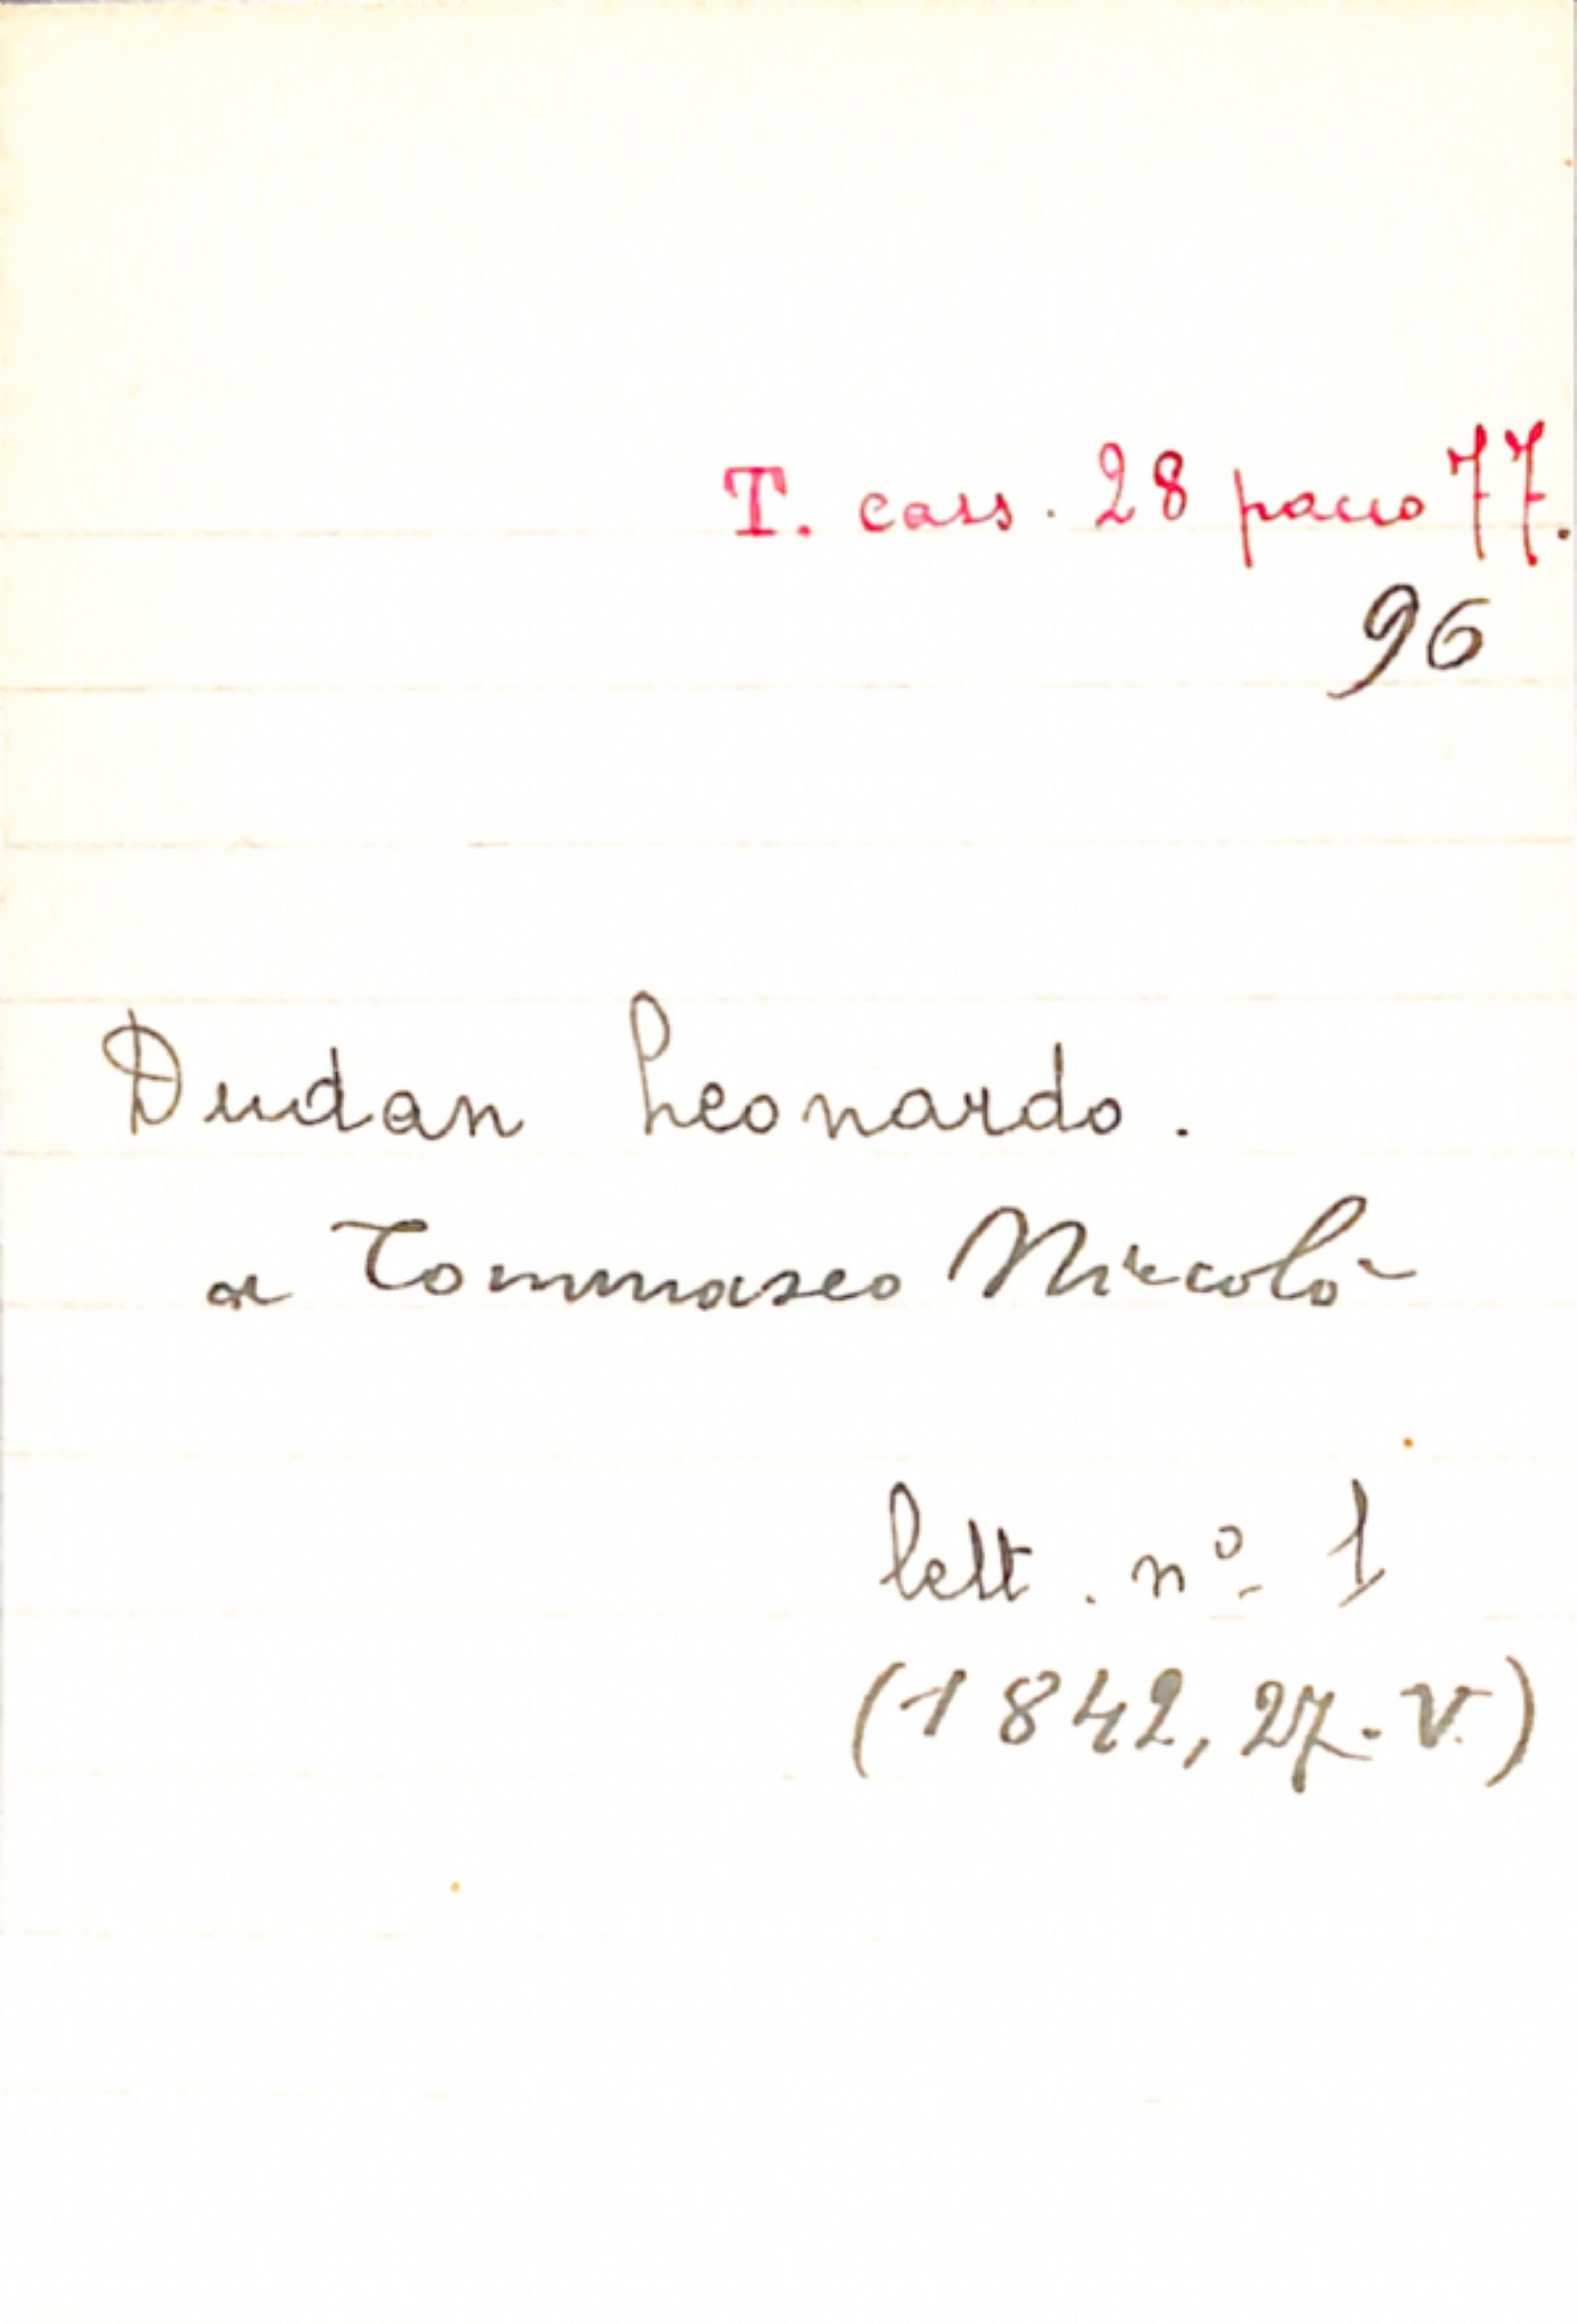 T. cass. 28 pacco 77.
96
Dudan Leonardo.
a Tommaseo Niccolò
lett. nº 1
(1842, 27-V.)